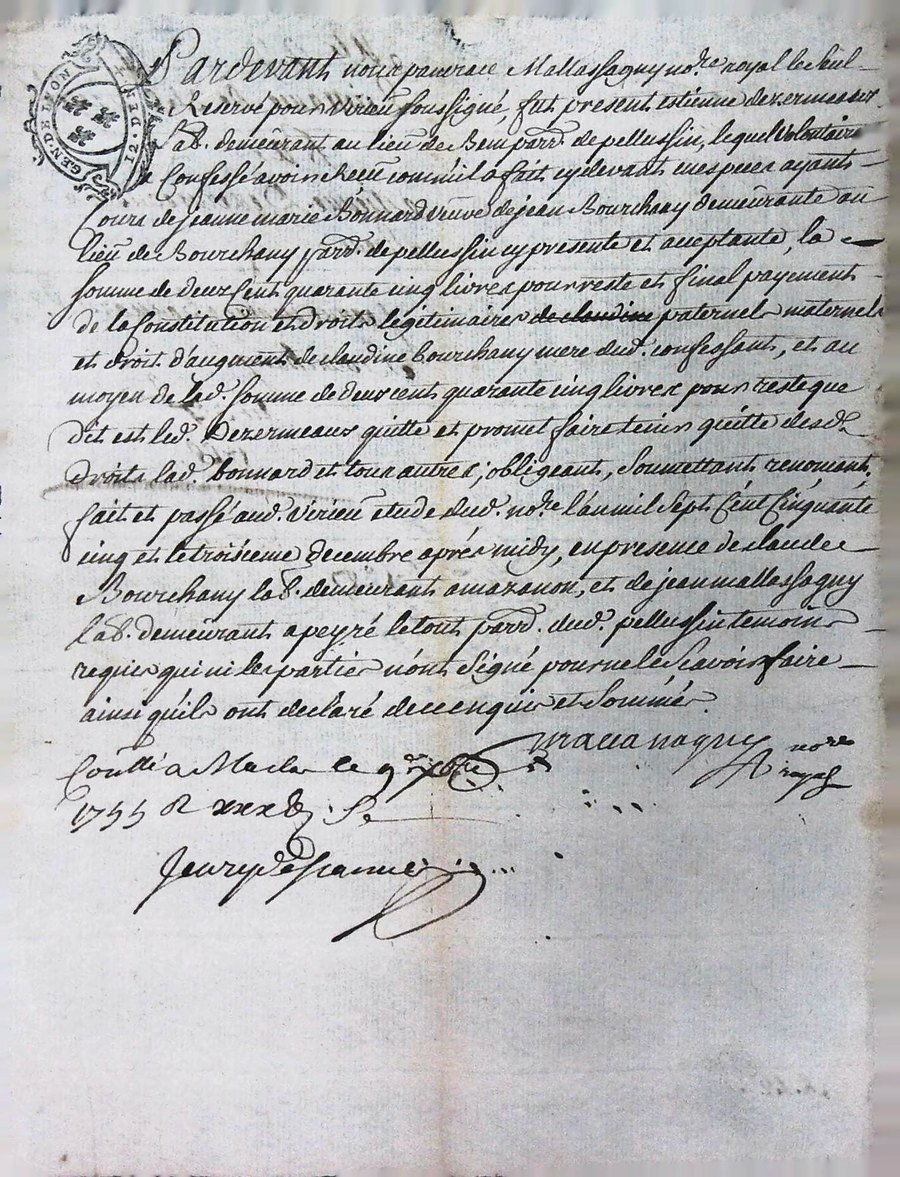 GEN · DE LION
12 · DEN · I
Pardevant nous pancrace Mallassagny no.re royal le seul
Reservé pour virieu soussigné, fut present estienne dezermeaux
lab.r demeurant au lieu de Bem parr.d de pellussin, lequel volontaire
a Confessé avoir Receu comm'il a fait cy devant en especes ayants
Cours de jeanne marie Bonnard veuve de jean Bourchany demeurante au
lieu de Bourchany parr.d de pellussin cy presente et acceptante, la
somme de deux Cent quarante cinq livres pour reste et final payement
de la Constitution et droits legitimaires de claudine paternels maternels
et droit d'augment de claudine bourchany mere dud. confessant, et au
moyen de lad. somme de deux cent quarante cinq livres pour reste que
dit est led. Dezermeaux quitte et promet faire tenir quitte desd.
droits lad. bonnard et tous autres, obligeant, soumettant, renoncant,
fait et passé aud. virieu etude dud. no.re l'an mil sept Cent Cinquante
cinq et le troisieme decembre après midy, en presence de claude
Bourchany lab.r demeurant a mazanon, et de jean mallassagny
lab.r demeurant a peyré le tout parr.d dud. pellussin temoins
requis qui ni les parties n'ont signé pour ne le scavoir faire
ainsi qu'ils ont declaré de ce enquis et sommés.
no.re
Conllé a Maclas le 9.e xbre
royal
1755 R xxx